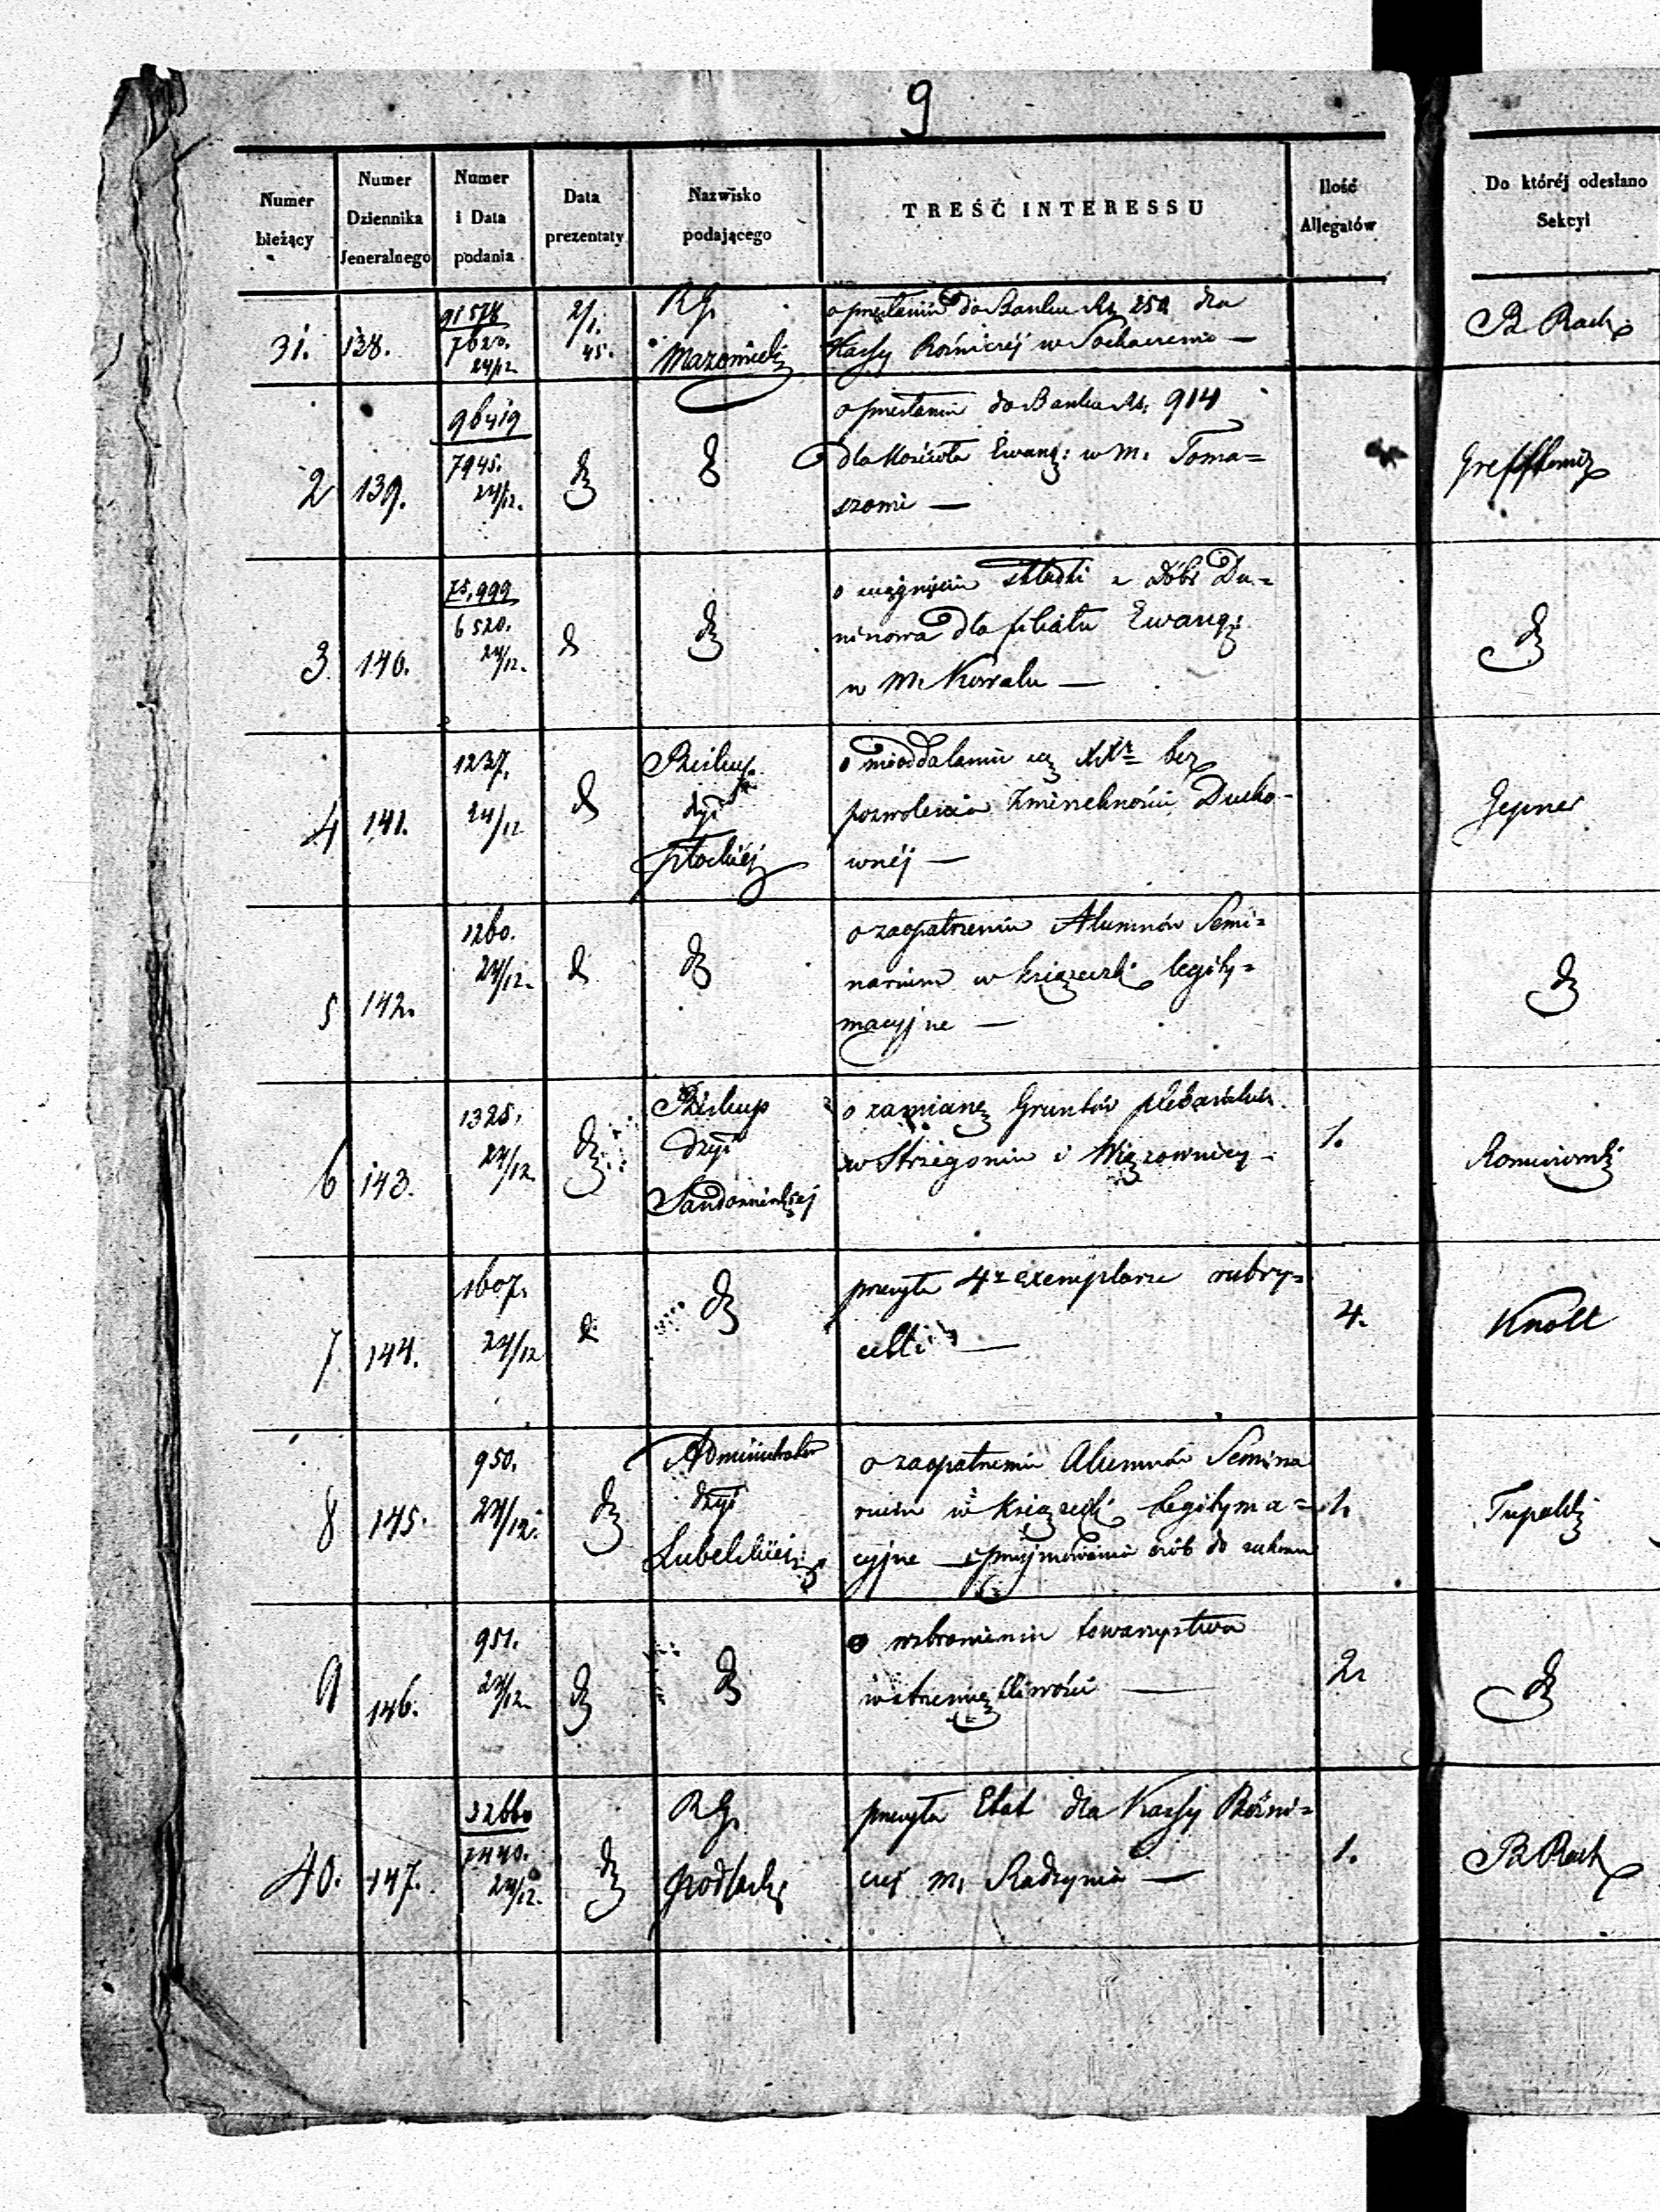 9
Numer bieżący
Numer Dziennika Jeneralnego
Numer i Data podania
Data prezentaty
Nazwisko podającego
TREŚĆ INTERESSU
Ilość Allegatów
Do któréj odesłano Sekcyi
31. 138. 91578 7620. 24/12 2/1. 45. RG. Mazowiecki
o przesłaniu do Banku Rs. 250 dla
Kassy Bożniczéj w Sochaczewie —
B Rach
2 139. 96419 7945. 24/12. d
o przesłaniu do Banku Rs. 914
dla Kościoła Ewang: w M. Toma=
szowie —
3. 140. 75,999 6520. 24/12. d
o ściągnięciu składki z Dóbr Du=
ninowa dla filiału Ewang:
w M. Kowalu —
4 141. 1237. 24/12 Biskup dyi Płockiéj
o nieoddalaniu się XXży bez
pozwolenia Zwierzchności Ducho-
wnéj —
Gepner
5 142. 1260. 24/12. d
o zaopatrzeniu Alumnów Semi=
narium w książeczki legity=
macyjne —
6 143. 1325. 24/12. Biskup Dyi Sandomierskiéj
o zamianę Gruntów plebańskich
w Strzegomiu i Wiązownicy -
1.
7 144. 1607. 24/12 d
przesyła 4ry exemplarze rubry=
celli —
4. Knoll
8 145. 950. 24/12. Administrator dyi Lubelskiéj
o zaopatrzeniu Alumnów Semina
rium w książeczki legityma=
cyjne — i przyjmowaniu osób do zakonu
1.
9 146. 951. 24/12. d
o wzbronieniu towarzystwa
wstrzemięźliwości —
2.
40. 147. 32660 7440. 24/12. RG. Podlaski
przesyła Etat dla Kassy Bożni=
czéj m. Radzynia —
1. B Rach